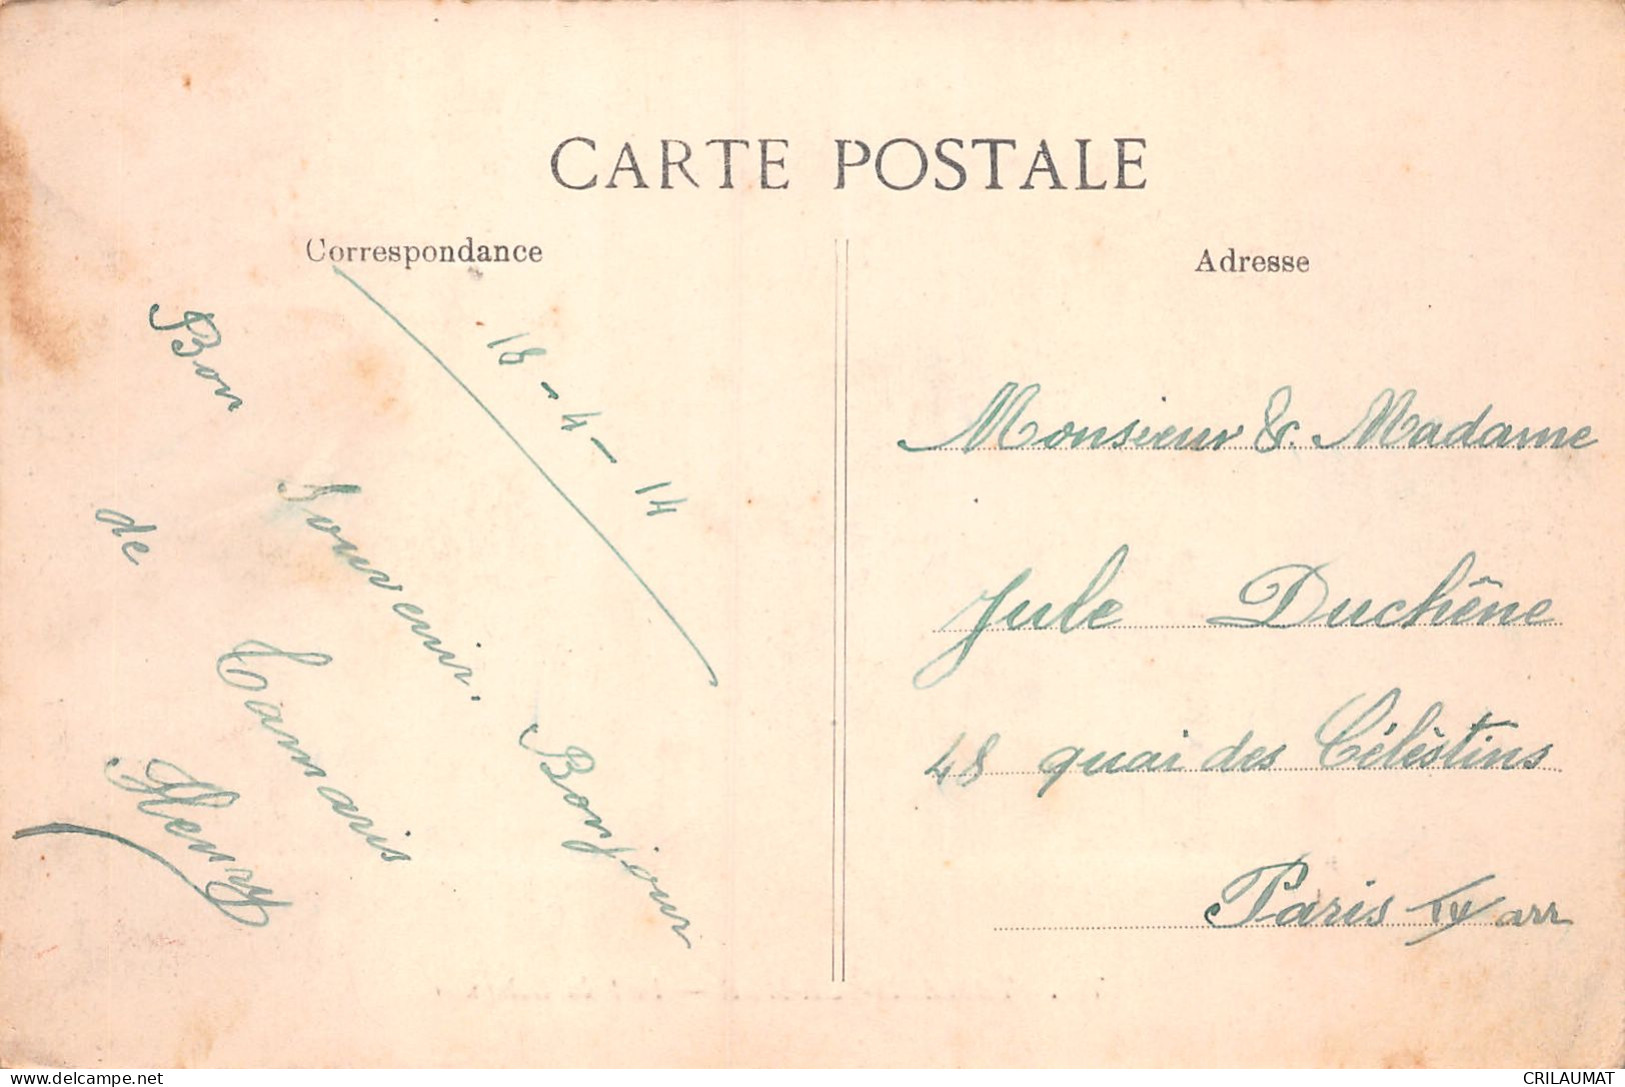 CARTE POSTALE
Correspondance
18-4-14
Bon Souvenir. Bonjour
de Tamaris
Henry
Adresse
Monsieur & Madame
Jule Duchêne
48 quai des Célèstins
Paris IV arr
CRILAUMAT